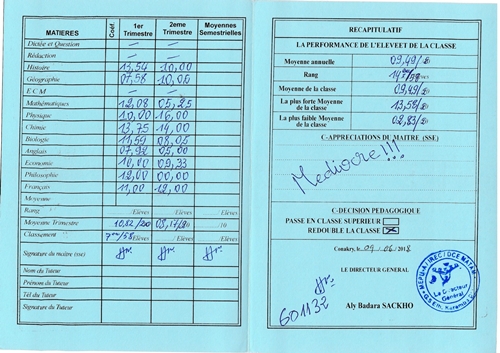 MATIERES Coef. 1er Trimestre 2eme Trimestre Moyennes Semestrielles
Dictée et Question
Rédaction
Histoire 13,54 10,00
Géographie 07,58 10,00
E C M
Mathématiques 12,08 05,25
Physique 10,00 16,00
Chimie 13,75 14,00
Biologie 11,59 08,05
Anglais 07,92 05,00
Economie 10,00 09,33
Philosophie 12,00 00,00
Français 11,00 12,00
Moyenne
Rang /Elèves /Elèves /Elèves
Moyenne Trimestre 10,82/20 08,17/20 /10
Classement 7ème/58 Elèves /Elèves /Elèves
Signature du maître (sse)
Nom du Tuteur
Prénom du Tuteur
Tél du Tuteur
Signature du Tuteur
RECAPITULATIF
LA PERFORMANCE DE L'ELEVEET DE LA CLASSE
Moyenne annuelle 09,49/20
Rang
Moyenne de la classe 09,49/20
La plus forte Moyenne de la classe 13,58/20
La plus faible Moyenne de la classe 02,83/20
C-APPRECIATIONS DU MAITRE (SSE)
Mediocre!!!
C-DECISION PEDAGOGIQUE
PASSÉ EN CLASSE SUPERIEUR
REDOUBLE LA CLASSE
Conakry, le 09/06/2018
LE DIRECTEUR GENERAL
601132
Aly Badara SACKHO
Le Directeur Général